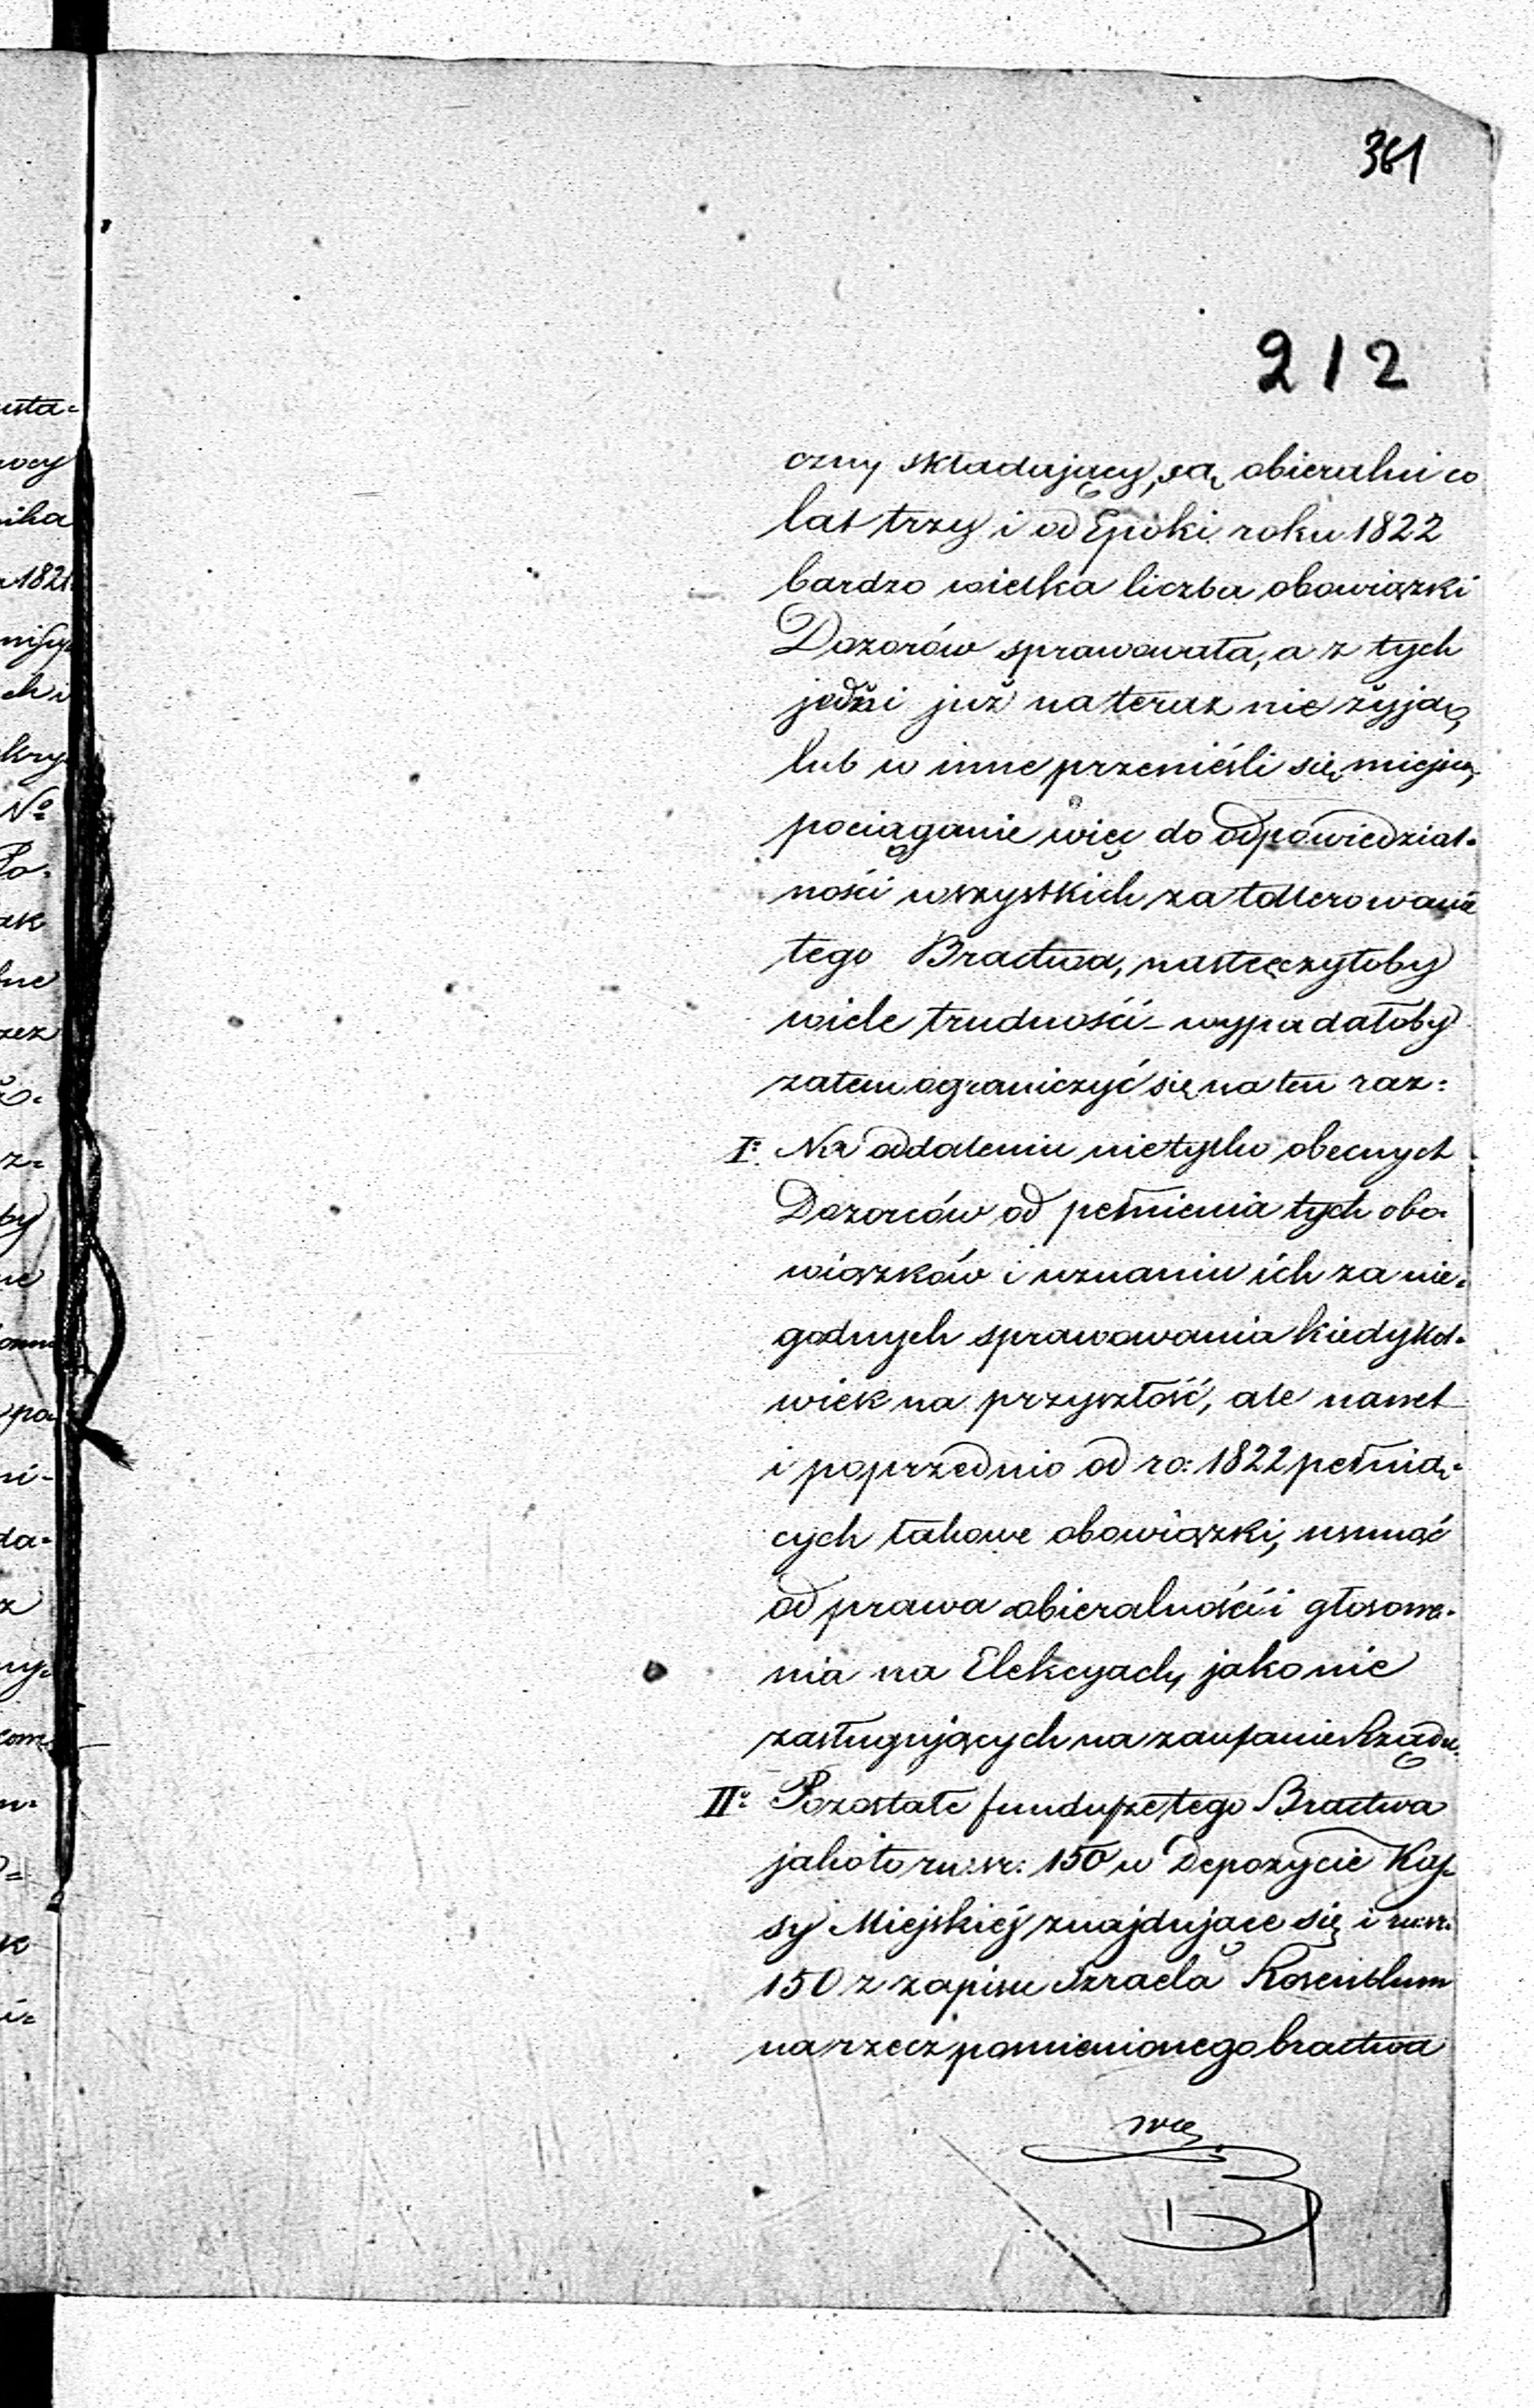 361
212
czny składający, są obieralni co
lat trzy i od Epoki roku 1822
bardzo wielka liczba obowiązki
Dozorów sprawowała, a z tych
jedni już na teraz nie żyją,
lub w inne przenieśli się miejsca,
pociąganie więc do odpowiedzial-
ności wszystkich za tollerowanie
tego Bractwa, nastręczyłoby
wiele trudności – wypadałoby
zatem ograniczyć się na ten raz:
I: Na oddaleniu nietylko obecnych
Dozorców od pełnienia tych obo-
wiązków i uznaniu ich za nie-
godnych sprawowania kiedykol-
wiek na przyszłość, ale nawet
i poprzednio od ro: 1822 pełnią-
cych takowe obowiązki, usunąć
od prawa obieralności i głosowa-
nia na Elekcyach, jako nie
zasługujących na zaufanie Rządu.
II: Pozostałe fundusze tego Bractwa
jako to ru: sr: 150 w Depozycie Kas-
sy Miejskiej znajdujące się i ru: sr:
150 z zapisu Izraela Rosenblum
na rzecz pomienionego bractwa
usta-
1821
kry-
No
ak
ne
zez
z-
by
ne
pa-
ni-
da-
z
ny-
i-